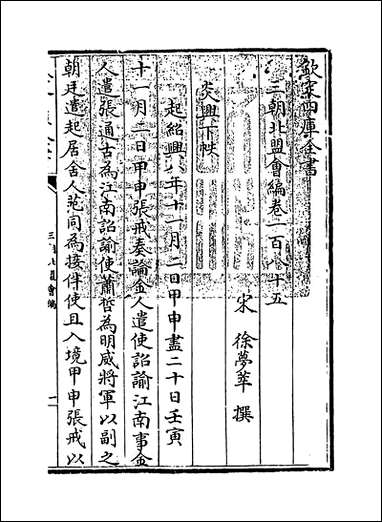 欽定四庫全書
三朝北盟會編卷一百八十五
宋 徐夢莘 撰
炎興下帙
起紹興八年十一月二日甲申盡二十日壬寅
十一月二日甲申張戒奏論金人遣使詔諭江南事金
人遣張通古為江南詔諭使蕭哲為明威將軍以副之
朝廷遣起居舍人范同為接伴使且入境甲申張戒以
三朝北盟會編
一